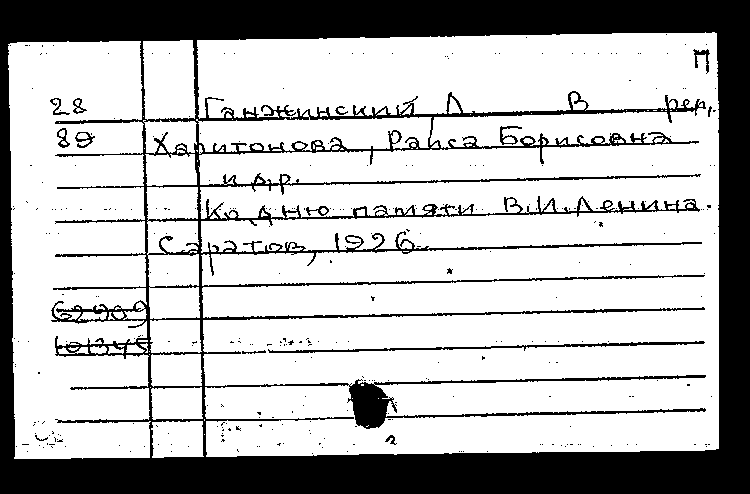 П
28 Ганжинский, Л. В рец.
89 Харитонова, Раиса Борисовна
и др.
Ко дню памяти В.И.Ленина.
Саратов, 1926.
62909
101345